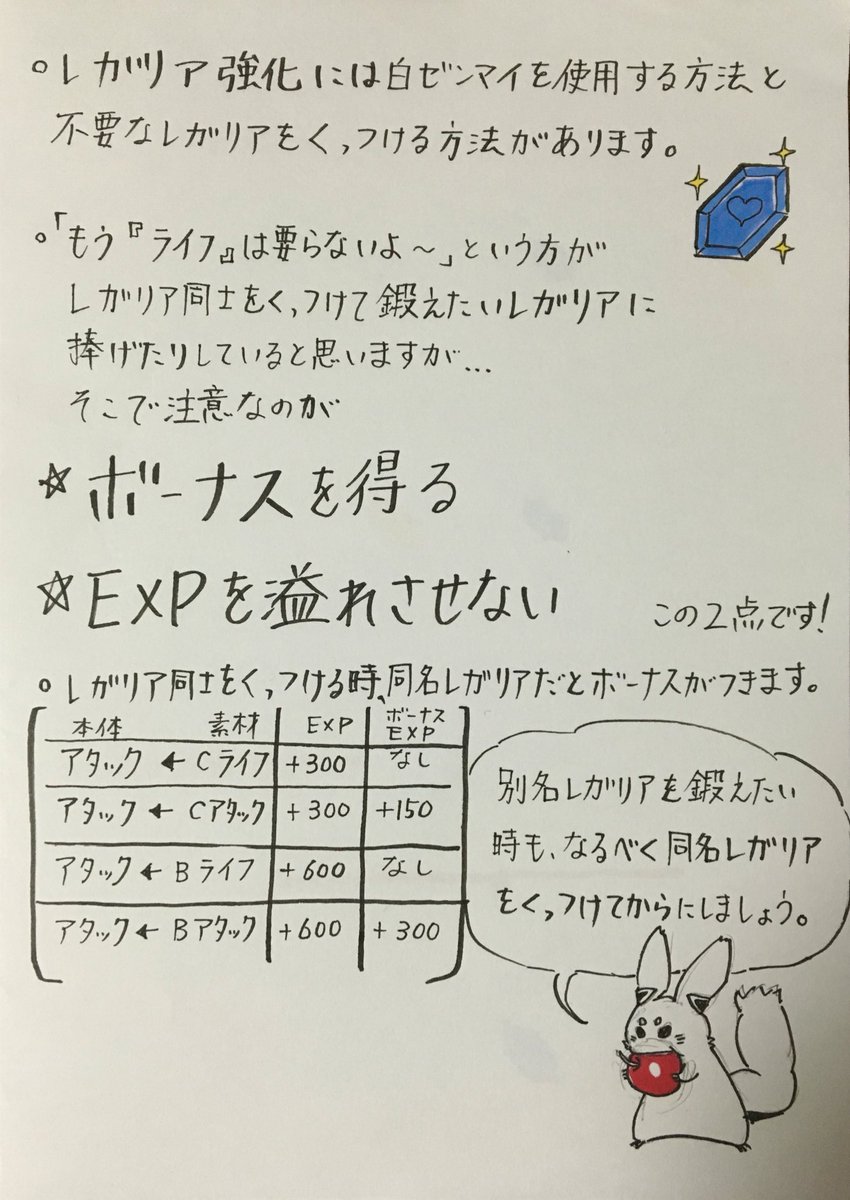 ○レガリア強化には白ゼンマイを使用する方法と
不要なレガリアをくっつける方法があります。
○「もう『ライフ』は要らないよ～」という方が
レガリア同士をくっつけて鍛えたいレガリアに
捧げたりしていると思いますが…
そこで注意なのが
☆ボーナスを得る
☆EXPを溢れさせない
この2点です!
○レガリア同士をくっつける時、同名レガリアだとボーナスがつきます。
本体 素材 EXP ボーナスEXP
アタック ← Cライフ +300 なし
アタック ← Cアタック +300 +150
アタック ← Bライフ +600 なし
アタック ← Bアタック +600 +300
別名レガリアを鍛えたい
時も、なるべく同名レガリア
をくっつけてからにしましょう。